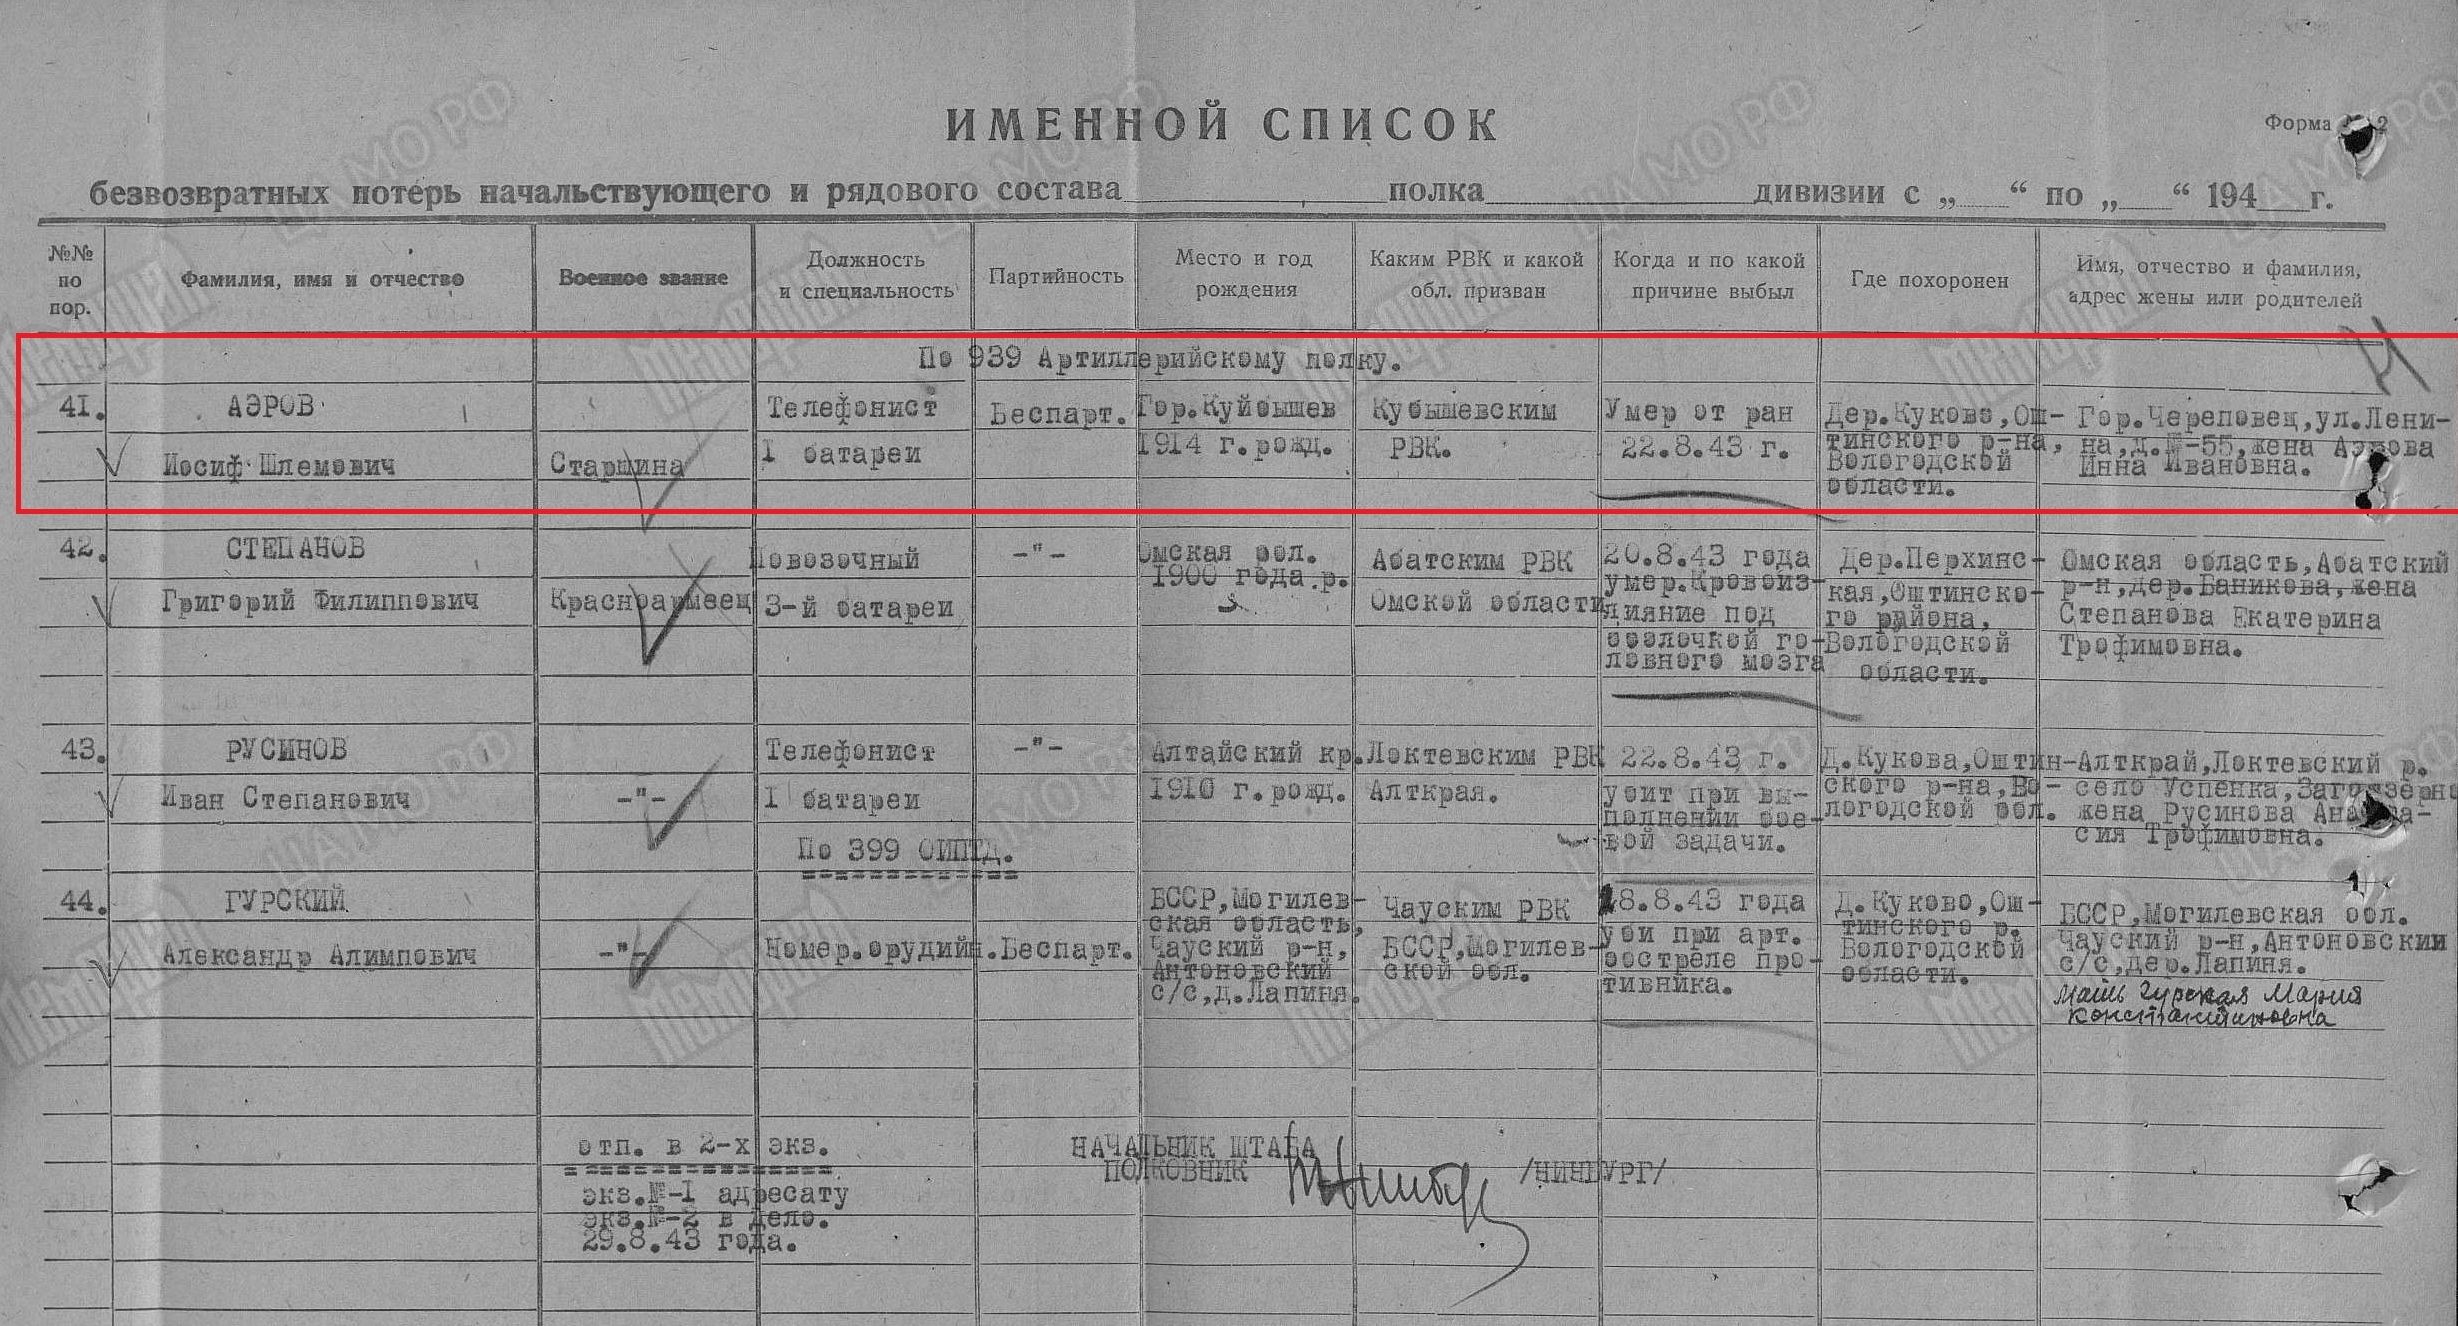 ИМЕННОЙ СПИСОК
Форма 2
безвозвратных потерь начальствующего и рядового состава полка дивизии с „ “ по „ “ 194 г.
№№ по пор.
Фамилия, имя и отчество
Военное звание
Должность и специальность
Партийность
Место и год рождения
Каким РВК и какой обл. призван
Когда и по какой причине выбыл
Где похоронен
Имя, отчество и фамилия, адрес жены или родителей
По 939 Артиллерийскому полку.
41.
АЭРОВ
Иосиф Шлемович
Старшина
Телефонист
I батареи
Беспарт.
Гор.Куйбышев
1914 г.рожд.
Кубышевским
РВК.
Умер от ран
22.8.43 г.
Дер.Куково,Ош-
тинского р-на,
Вологодской
области.
Гор.Череповец,ул.Лени-
на,д.№-55,жена Аэрова
Инна Ивановна.
42.
СТЕПАНОВ
Григорий Филиппович
Красноармеец
Повозочный
3-й батареи
-"-
Омская обл.
1900 года.р.
Абатским РВК
Омской области
20.8.43 года
умер.Кровоиз-
лияние под
оболочкой го-
ловного мозга
Дер.Перхинс-
кая,Оштинско-
го района,
Вологодской
области.
Омская область,Абатский
р-н,дер.Баникова,жена
Степанова Екатерина
Трофимовна.
43.
РУСИНОВ
Иван Степанович
-"-
Телефонист
I батареи
-"-
Алтайский кр.
1910 г.рожд.
Локтевским РВК
Алткрая.
22.8.43 г.
убит при вы-
полнении бое-
вой задачи.
Д.Кукова,Оштин-
ского р-на,Во-
логодской обл.
Алткрай,Локтевский р.
село Успенка,
жена Русинова Анаста-
сия Трофимовна.
По 399 ОИПТД.
44.
ГУРСКИЙ
Александр Алимпович
-"-
Номер.орудийн.
Беспарт.
БССР,Могилев-
ская область,
Чауский р-н,
Антоновский
с/с,д.Лапиня.
Чауским РВК
БССР,Могилев-
ской обл.
18.8.43 года
уби при арт.
обстреле про-
тивника.
Д.Куково,Ош-
тинского р.
Вологодской
области.
БССР,Могилевская обл.
Чауский р-н,Антоновский
с/с,дер.Лапиня.
мать Гурская Мария
Константиновна
отп. в 2-х экз.
экз.№-I адресату
экз.№-2 в дело.
29.8.43 года.
НАЧАЛЬНИК ШТАБА
ПОЛКОВНИК
/НИНБУРГ/
ЦАМО РФ
Мемориал